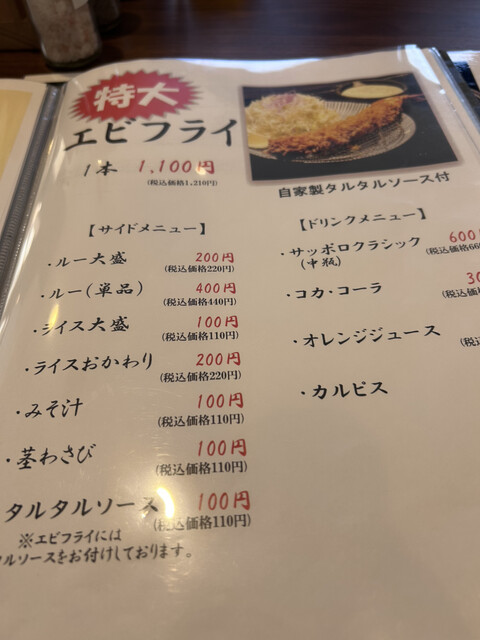 特大
エビフライ
1本 1,100円
(税込価格1,210円)
自家製タルタルソース付
【サイドメニュー】
・ルー大盛 200円
(税込価格220円)
・ルー(単品) 400円
(税込価格440円)
・ライス大盛 100円
(税込価格110円)
・ライスおかわり 200円
(税込価格220円)
・みそ汁 100円
(税込価格110円)
・茎わさび 100円
(税込価格110円)
タルタルソース 100円
(税込価格110円)
※エビフライには
ルソースをお付けしております。
【ドリンクメニュー】
・サッポロクラシック 600
(中瓶) (税込価格66
・コカ・コーラ 30
(税込価格
・オレンジジュース
(税込
・カルピス